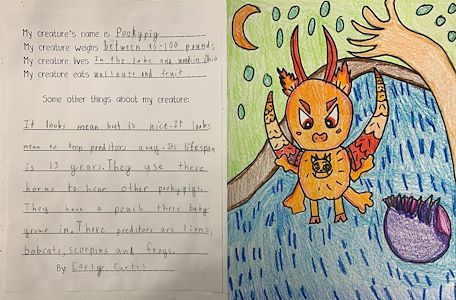 My creature's name is Pookypig
My creature weighs between 95-100 pounds
My creature lives In the lake and in Ohio
My creature eats wallnuts and fruit
Some other things about my creature:
It looks mean but is nice. It looks
mean to keep preditors away. Its lifespan
is 13 years. They use there
horns to hear other pookypigs.
They have a pouch there baby
grows in. There preditors are lians,
bobcats, scorpins and frogs.
By: Carly Curtis